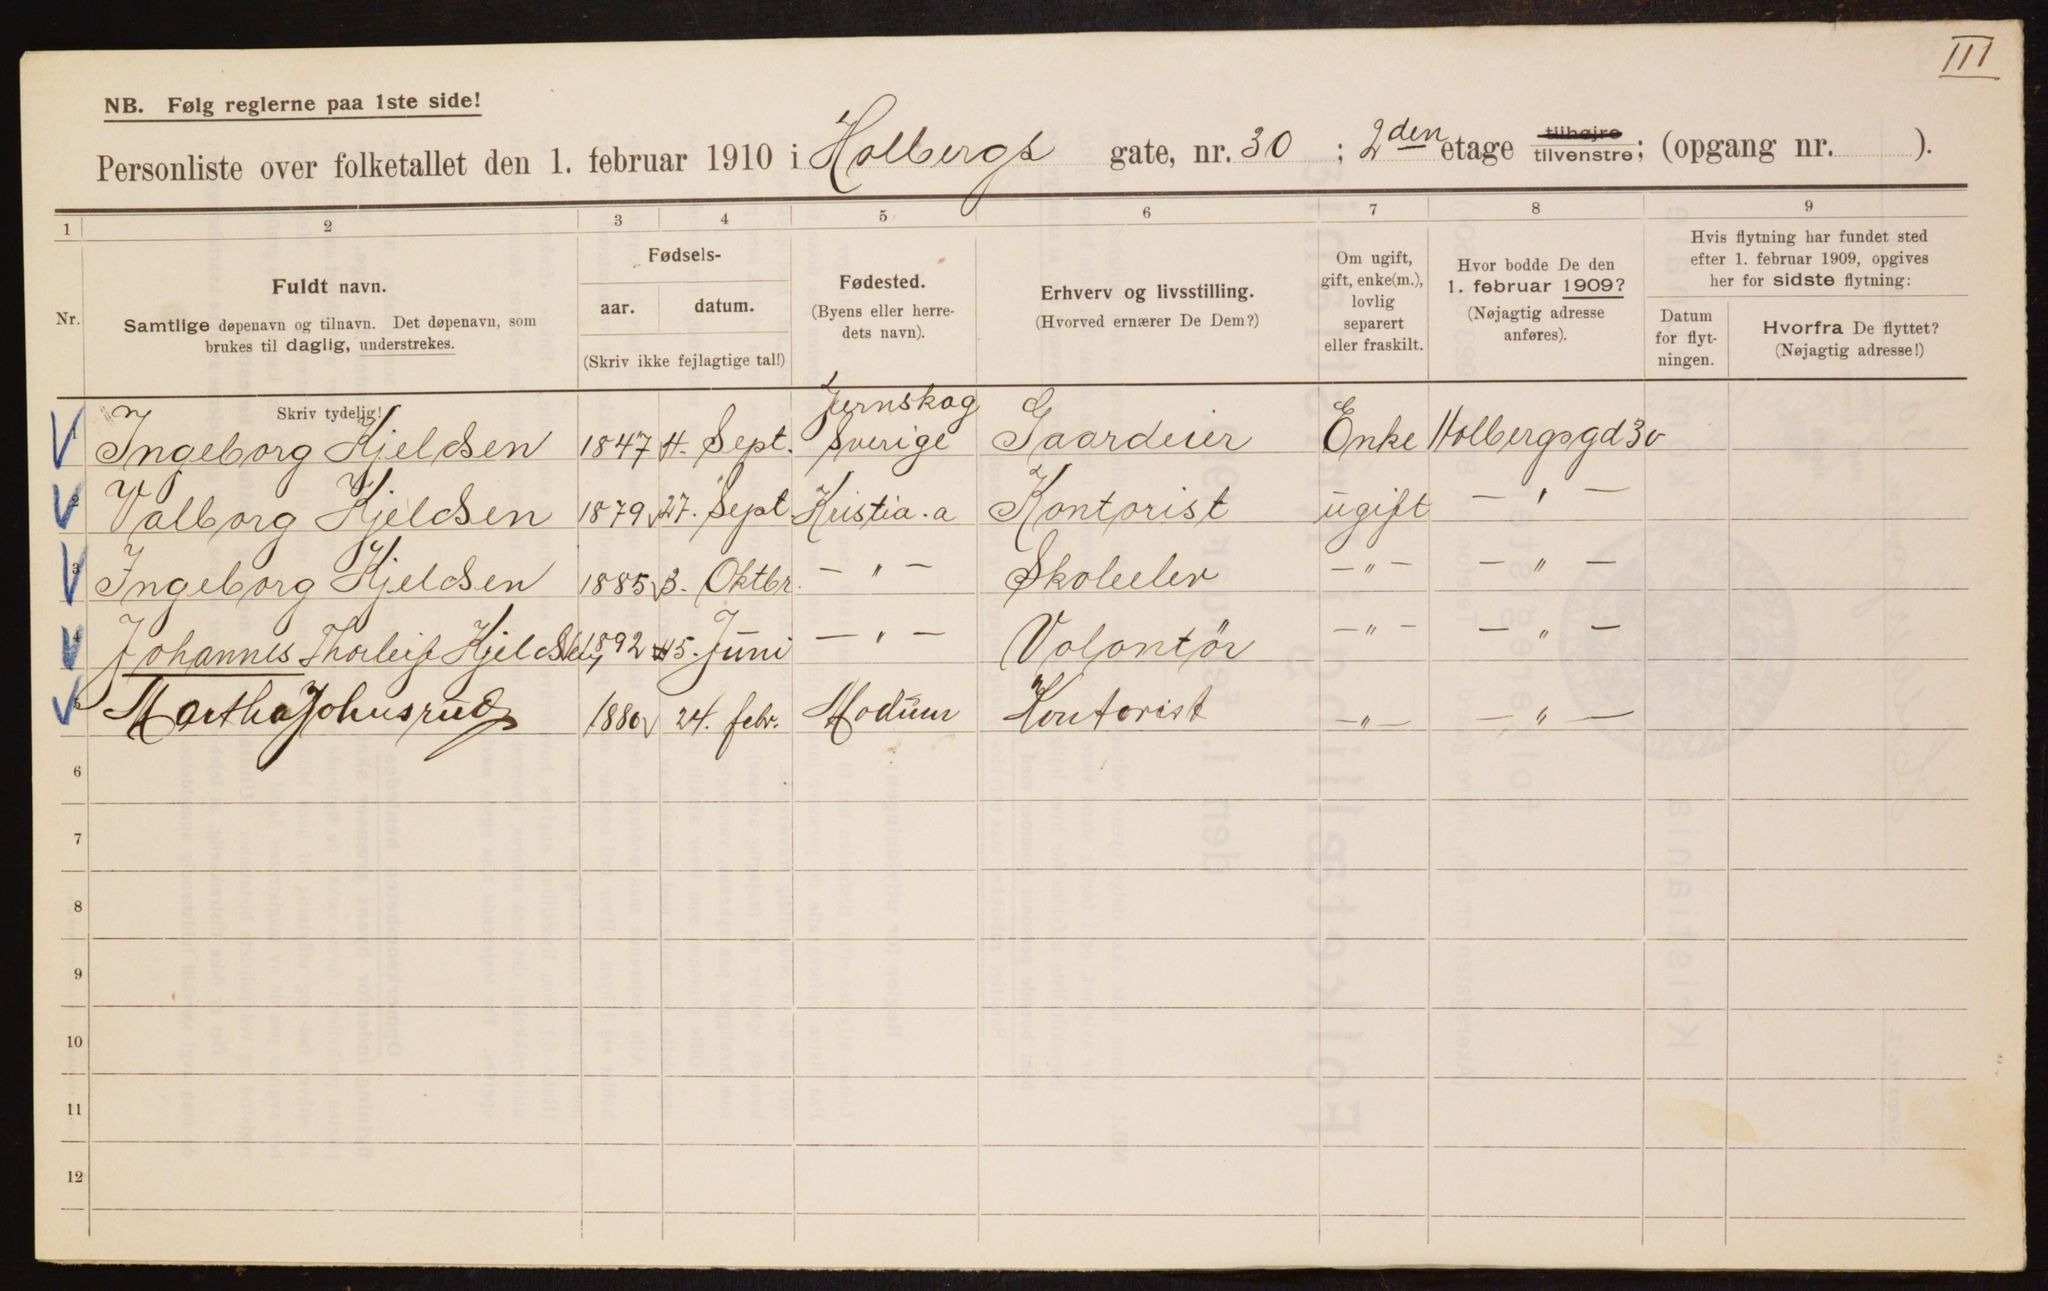 III
NB. Følg reglerne paa 1ste side!
Personliste over folketallet den 1. februar 1910 i Holbergs gate, nr. 30 ; 2den etage tilhøjre tilvenstre; (opgang nr. ).
1 2 3 4 5 6 7 8 9
Nr.
Fuldt navn.
Samtlige døpenavn og tilnavn. Det døpenavn, som
brukes til daglig, understrekes.
Fødsels-
aar. datum.
(Skriv ikke fejlagtige tal!)
Fødested.
(Byens eller herre-
dets navn).
Erhverv og livsstilling.
(Hvorved ernærer De Dem?)
Om ugift,
gift, enke(m.),
lovlig
separert
eller fraskilt.
Hvor bodde De den
1. februar 1909?
(Nøjagtig adresse
anføres).
Hvis flytning har fundet sted
efter 1. februar 1909, opgives
her for sidste flytning:
Datum
for flyt-
ningen.
Hvorfra De flyttet?
(Nøjagtig adresse!)
Skriv tydelig!
Jernskog
1 Ingeborg Kjeldsen 1847 4. Sept. Sverige Gaardeier Enke Holbergsgd 30
2 Valborg Kjeldsen 1879 27. Sept Kristia.a Kontorist ugift — " —
3 Ingeborg Kjeldsen 1885 3. Oktbr. — " — Skoleelev — " — — " —
4 Johannes Thorleif Kjeldsen 1892 15. Juni — " — Volontør — " — — " —
5 Martha Johnsrud 1880 24. febr. Modum Kontorist — " — — " —
6
7
8
9
10
11
12